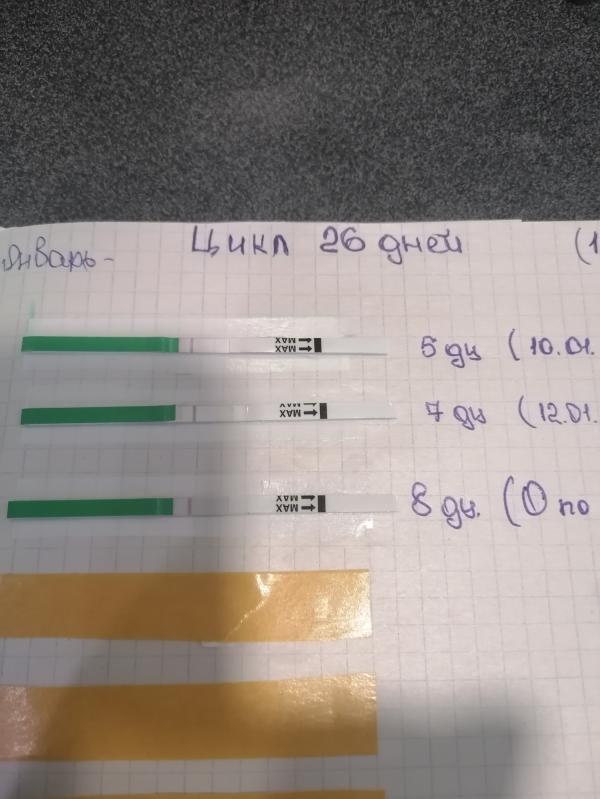 Цикл 26 дней (1
Январь-
MAX MAX 5 дц (10.01.
MAX MAX 7 дц (12.01.
MAX MAX 8 дц. (О по